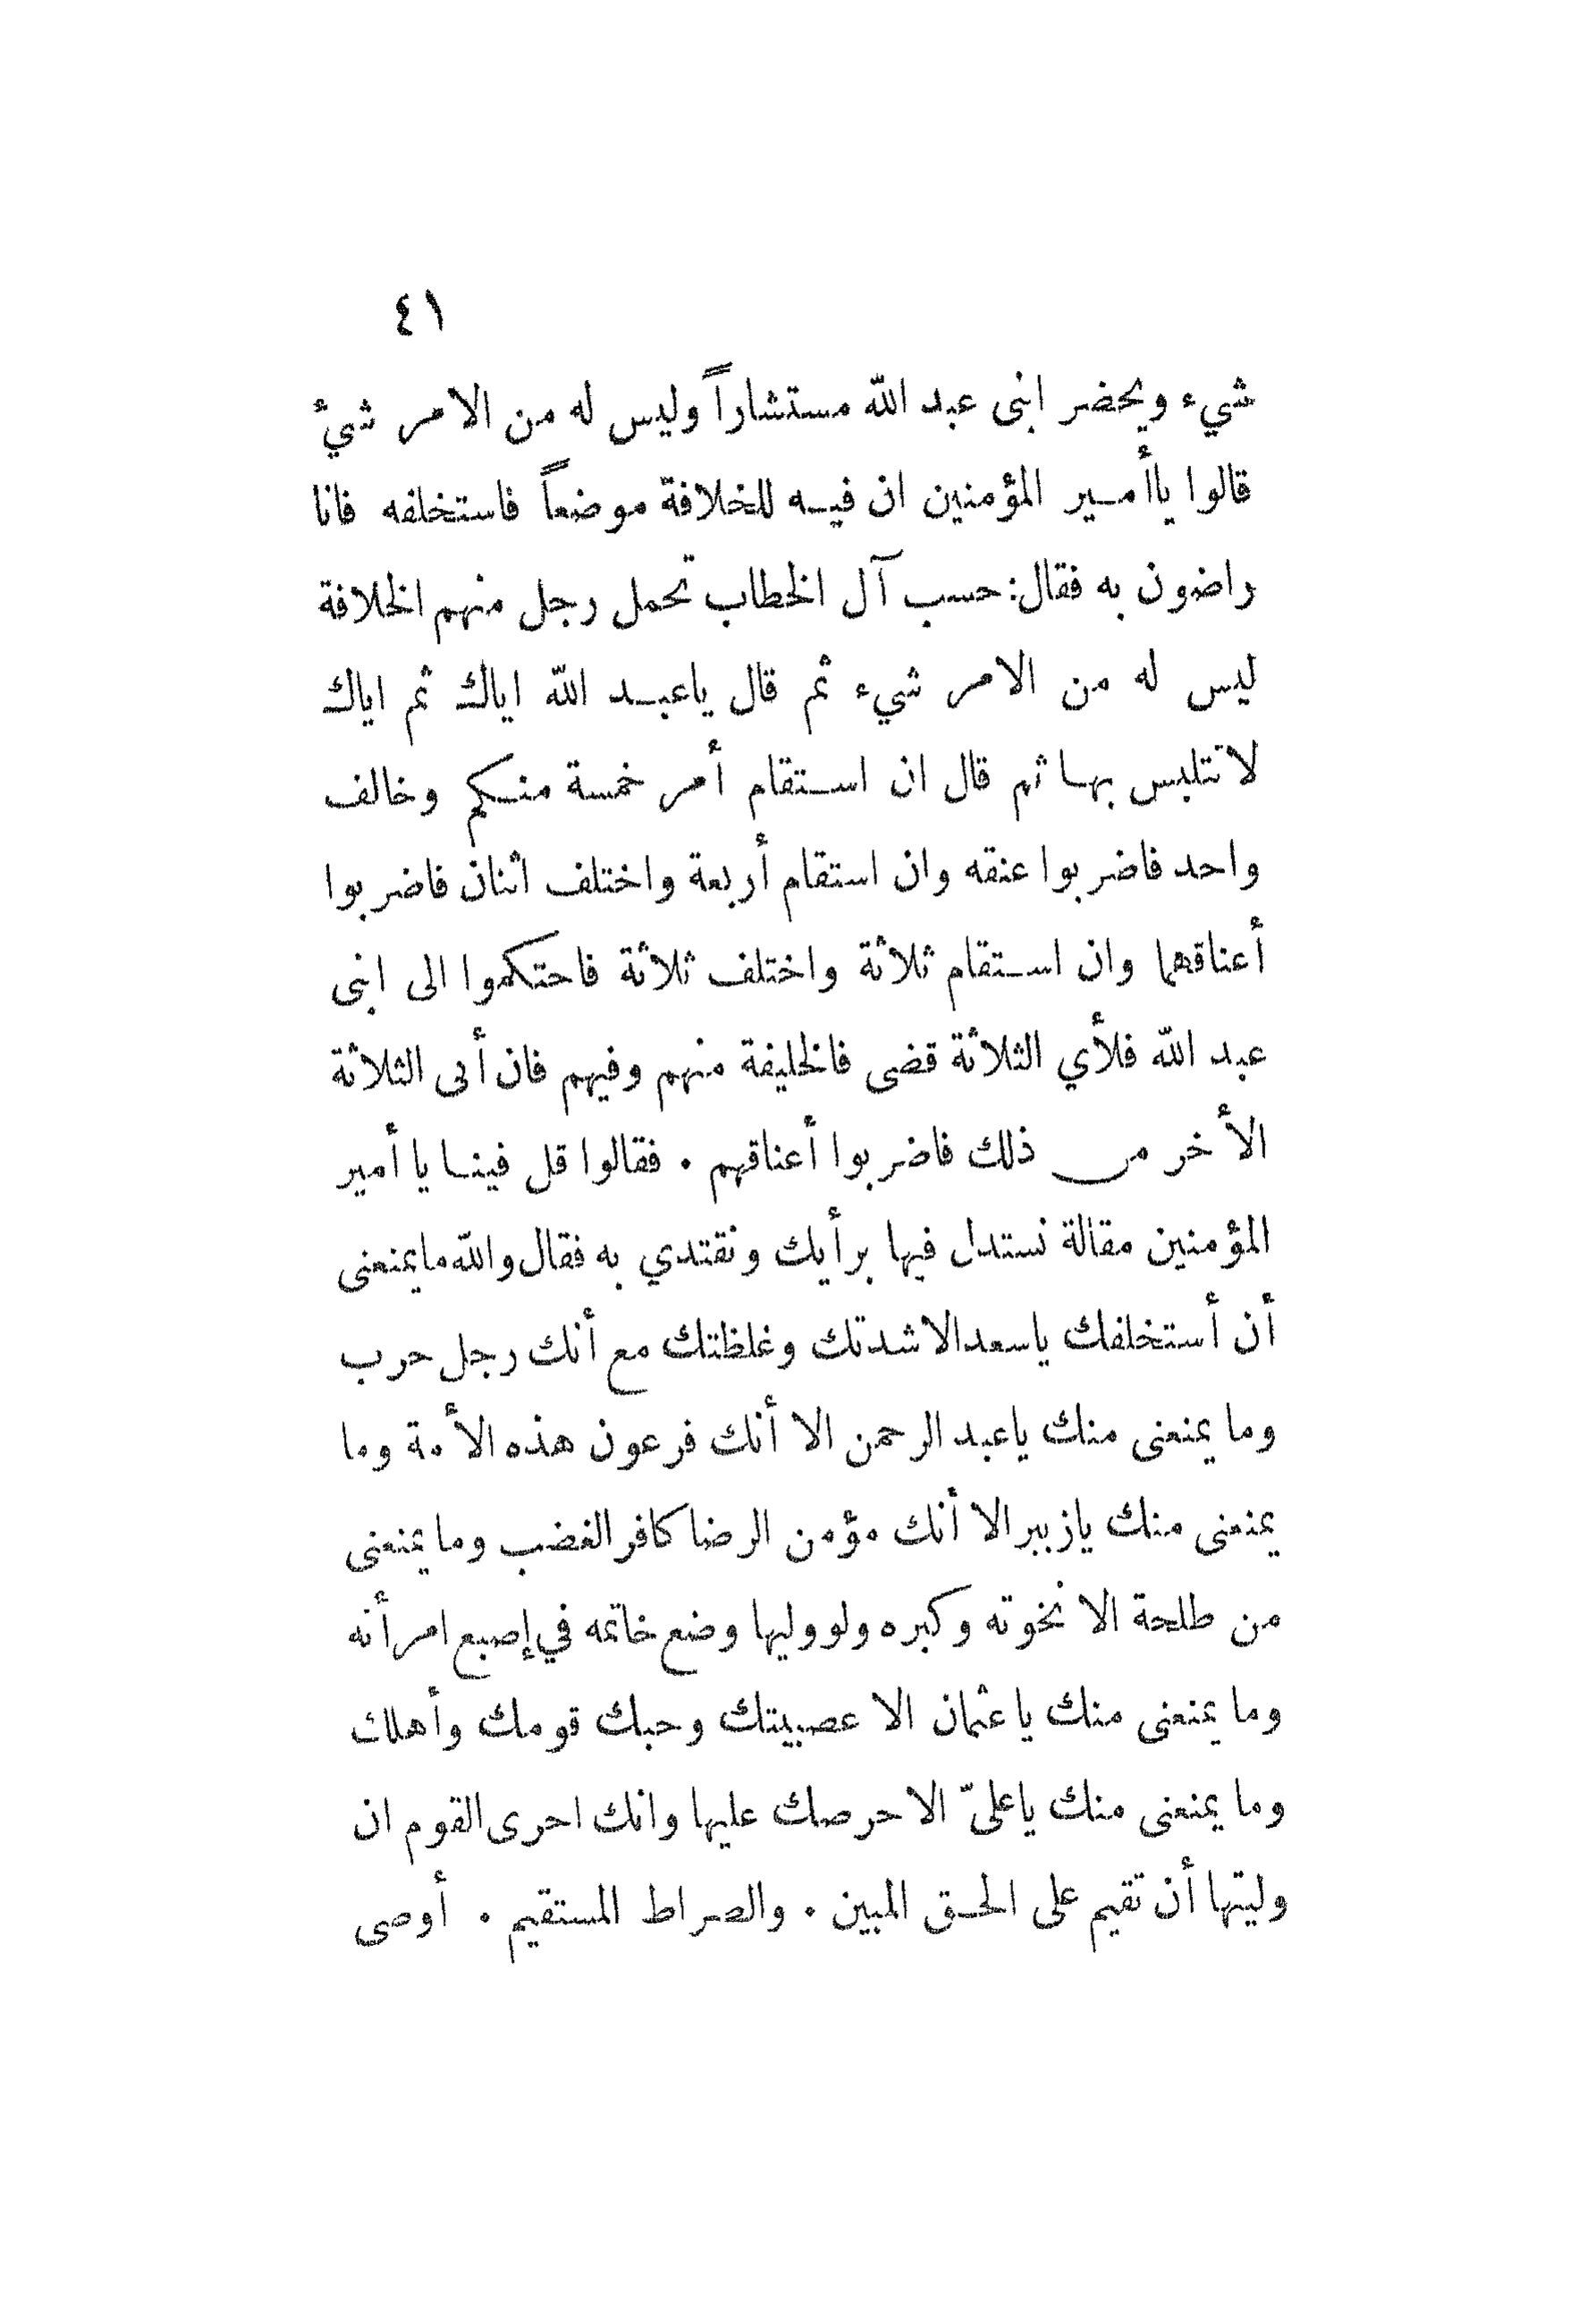 ٤١
شيء ويحضر ابنى عبد الله مستشاراً وليس له من الامر شيء
قالوا ياأمير المؤمنين ان فيه للخلافة موضعاً فاستخلفه فانا
راضون به فقال: حسب آل الخطاب تحمل رجل منهم الخلافة
ليس له من الامر شيء ثم قال ياعبد الله اياك ثم اياك
لا تتلبس بها ثم قال ان استقام أمر خمسة منكم وخالف
واحد فاضربوا عنقه وان استقام أربعة واختلف اثنان فاضربوا
أعناقهما وان استقام ثلاثة واختلف ثلاثة فاحتكموا الى ابنى
عبد الله فلأي الثلاثة قضى فالخليفة منهم وفيهم فان أبى الثلاثة
الأخر من ذلك فاضربوا أعناقهم . فقالوا قل فينا يا أمير
المؤمنين مقالة نستدل فيها برأيك ونقتدي به فقال والله مايمنعنى
أن أستخلفك ياسعد الا شدتك وغلظتك مع أنك رجل حرب
وما يمنعنى منك ياعبد الرحمن الا أنك فرعون هذه الأمة وما
يمنعنى منك يازبير الا أنك مؤمن الرضا كافر الغضب وما يمنعنى
من طلحة الا نخوته وكبره ولو وليها وضع خاتمه في إصبع امرأته
وما يمنعنى منك يا عثمان الا عصبيتك وحبك قومك وأهلك
وما يمنعنى منك ياعلىّ الا حرصك عليها وانك احرى القوم ان
وليتها أن تقيم على الحق المبين . والصراط المستقيم . أوصى